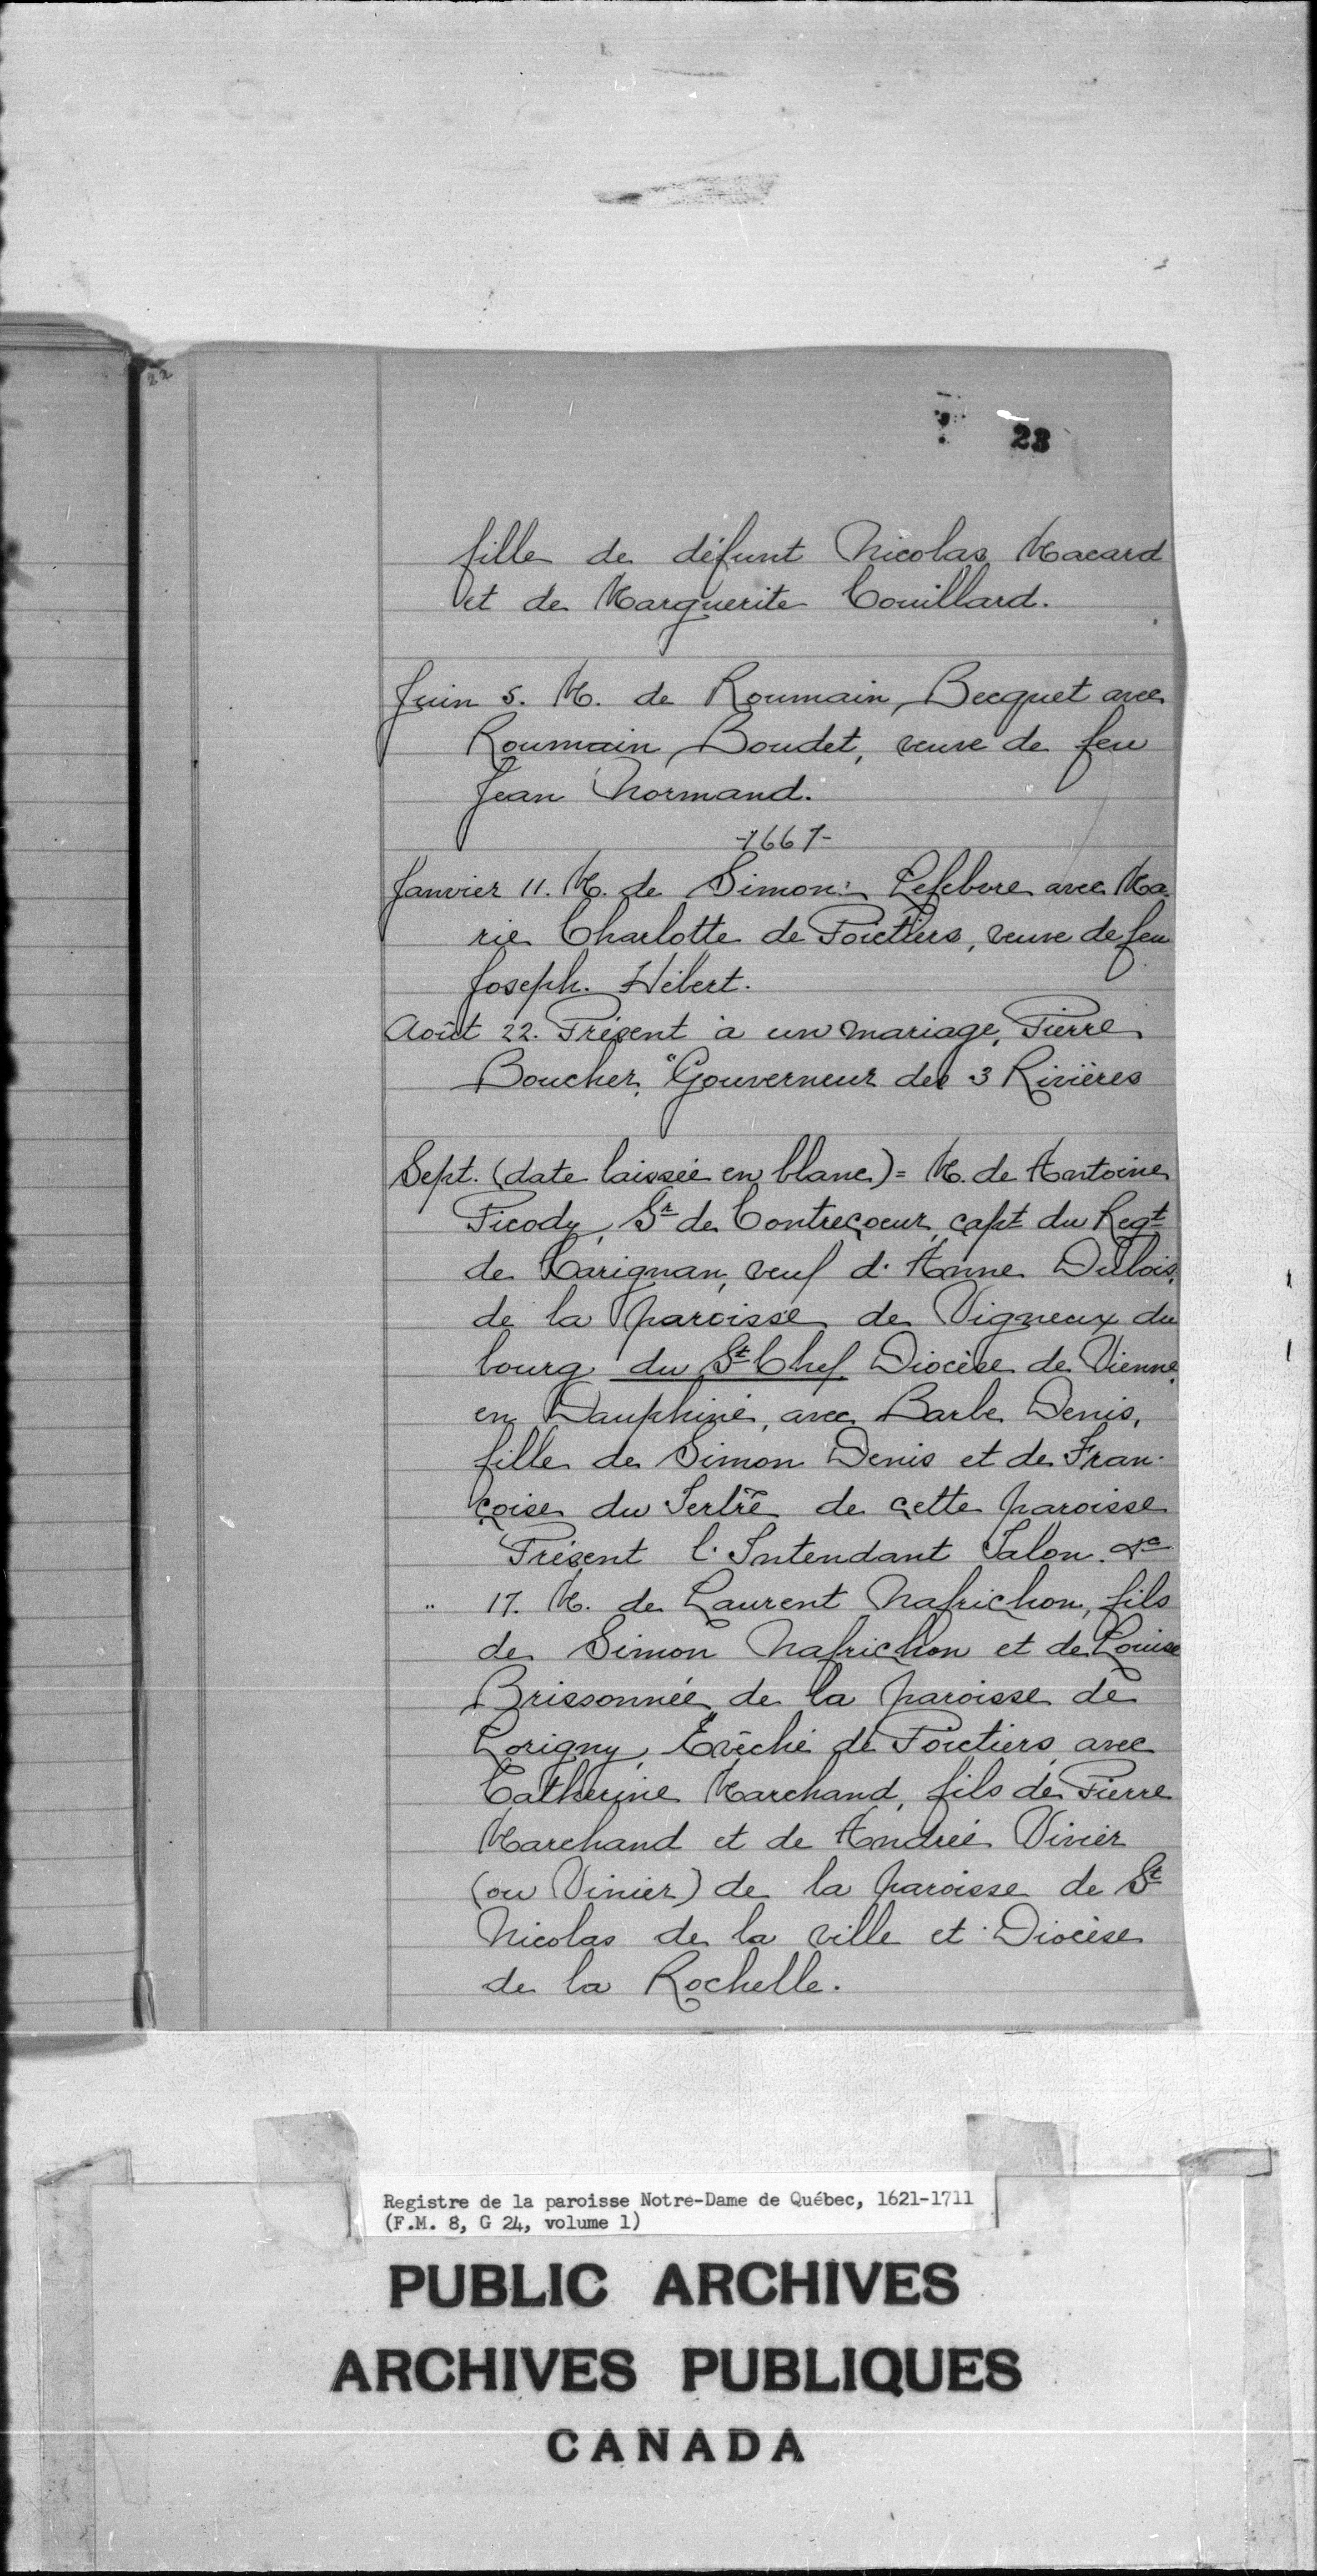 22
23
fille de défunt Nicolas Macard
et de Marguerite Couillard.
Juin 5. M. de Roumain Becquet avec
Roumain Boudet, veuve de feu
Jean Normand.
-1667-
Janvier 11. M. de Simon Lefebvre avec Ma-
rie Charlotte de Poictiers, veuve de feu
Joseph Hébert.
Août 22. Présent à un mariage, Pierre
Boucher, "Gouverneur des 3 Rivières
Sept. (date laissée en blanc) = M. de Antoine
Picody, Sr de Contrecoeur, capt du Regt
de Carignan, veuf d'Anne Dubois,
de la paroisse de Vigneux du
bourg du St Chef Diocèse de Vienne
en Dauphiné, avec Barbe Denis,
fille de Simon Denis et de Fran-
çoise du Tertre de cette paroisse
Présent l'Intendant Talon &c
" 17. M. de Laurent Nafrichon, fils
de Simon Nafrichon et de Louise
Brissonnée de la paroisse de
Lorigny, Evêché de Poictiers avec
Catherine Marchand, fils de Pierre
Marchand et de Andrée Vivier
(ou Vinier) de la paroisse de St
Nicolas de la ville et Diocèse
de la Rochelle.
Registre de la paroisse Notre-Dame de Québec, 1621-1711
(F.M. 8, G 24, volume 1)
PUBLIC ARCHIVES
ARCHIVES PUBLIQUES
CANADA